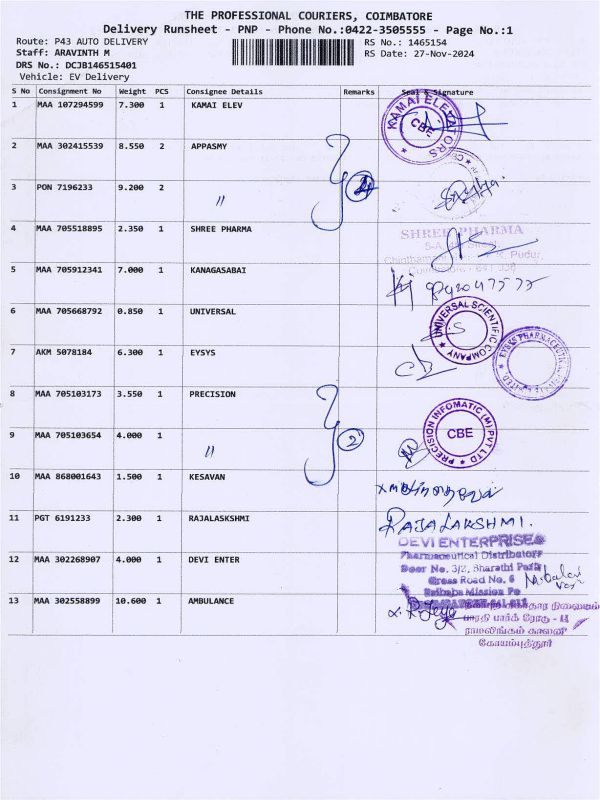 THE PROFESSIONAL COURIERS, COIMBATORE
Delivery Runsheet - PNP - Phone No.:0422-3505555 - Page No.:1
Route: P43 AUTO DELIVERY
RS No.: 1465154
Staff: ARAVINTH M
RS Date: 27-Nov-2024
DRS No.: DCJB146515401
Vehicle: EV Delivery
S No Consignment No Weight PCS Consignee Details Remarks Seal & Signature
1 MAA 107294599 7.300 1 KAMAI ELEV
KAMAI ELEVATORS CBE
2 MAA 302415539 8.550 2 APPASMY
3 PON 7196233 9.200 2 〃
4 MAA 705518895 2.350 1 SHREE PHARMA
SHREE PHARMA
5 MAA 705912341 7.000 1 KANAGASABAI
6 MAA 705668792 0.850 1 UNIVERSAL
UNIVERSAL SCIENTIFIC COMPANY
7 AKM 5078184 6.300 1 EYSYS
8 MAA 705103173 3.550 1 PRECISION
PRECISION INFOMATIC (M) PVT LTD CBE
9 MAA 705103654 4.000 1 〃
2
10 MAA 868001643 1.500 1 KESAVAN
11 PGT 6191233 2.300 1 RAJALASKSHMI
RAJALAKSHMI.
12 MAA 302268907 4.000 1 DEVI ENTER
DEVI ENTERPRISES
Pharmaceutical Distributors
Door No. 3/2, Bharathi Park
Cross Road No. 6
Saibaba Mission Po
13 MAA 302558899 10.600 1 AMBULANCE
சுகாதார நிலையம்
பாரதி பார்க் ரோடு - II
ராமலிங்கம் காலனி
கோயம்புத்தூர்